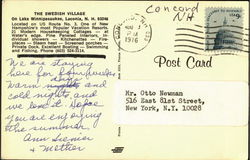 Concord
NH
THE SWEDISH VILLAGE
On Lake Winnipesaukee, Laconia, N. H. 03246
Located on US Route No. 3, One of New
Hampshire's most Popular Vacation Resorts.
21 Modern Housekeeping Cottages - at
Water's edge. Pine Paneled Interiors. In-
dividual showers - Kitchenettes - Fire-
places - Steam heat - Screened porches -
Private Dock. Excellent Boating, Swimming
and Fishing. Phone (603) 524-3134.
1976
Post Card
We are staying
here for
warm and
cold nights and
we love it. Hope
you are enjoying
the summer.
Ann
& Mother
Mr. Otto Newman
516 East 81st Street,
New York, N.Y. 10028